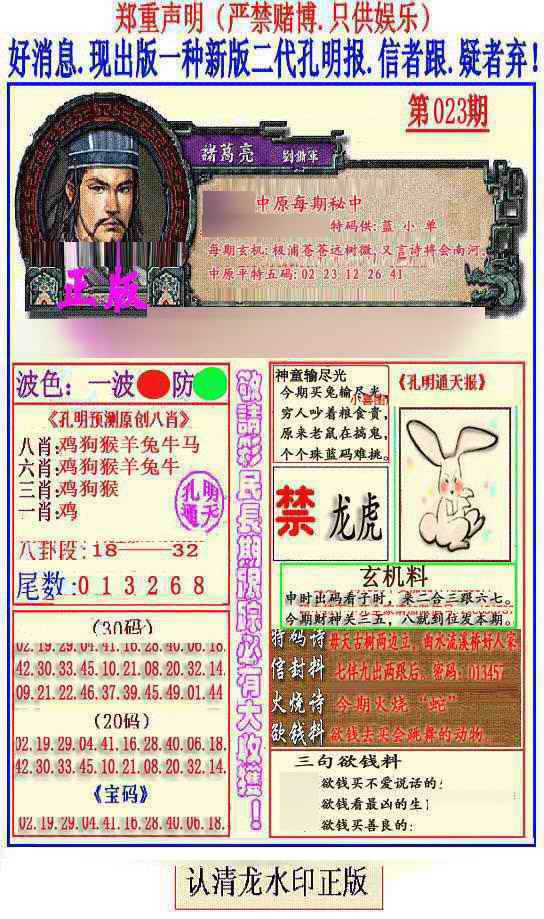 郑重声明（严禁赌博.只供娱乐）
好消息.现出版一种新版二代孔明报.信者跟.疑者弃!
第023期
諸葛亮 劉鑭軍
中原每期秘中
特码供:蓝 小 单
每期玄机:极浦苍苍远树微,又言诗将会南河.
中原平特五码:02 23 12 26 41
正版
波色：一波 防
《孔明预测原创八肖》
八肖:鸡狗猴羊兔牛马
六肖:鸡狗猴羊兔牛
三肖:鸡狗猴
一肖:鸡
孔明
通天
八卦段:18——32
尾数:013268
(30码)
02.19.29.04.41.16.28.40.06.18.
42.30.33.45.10.21.08.20.32.14.
09.21.22.46.37.39.45.49.01.44
(20码)
02.19.29.04.41.16.28.40.06.18.
42.30.33.45.10.21.08.20.32.14.
《宝码》
02.19.29.04.41.16.28.40.06.18.
敬請彩民長期跟踪必有大收獲！
神童输尽光
今期买兔输尽光
穷人吵着粮食贵,
原来老鼠在搞鬼,
个个珠蓝码难挑。
《孔明通天报》
禁 龙虎
玄机料
申时出码看子时，来二合三跟六七。
今期财神关三五，八就到位发本期。
特码诗 每天古树两边立，曲水流溪桥好人家
信封料 七伴九出两跟后、密码：013457
火烧诗 今期火烧“蛇”
欲钱料 欲钱去买会跳舞的动物。
三句欲钱料
欲钱买不爱说话的:
欲钱看最凶的生
欲钱买善良的:
认清龙水印正版